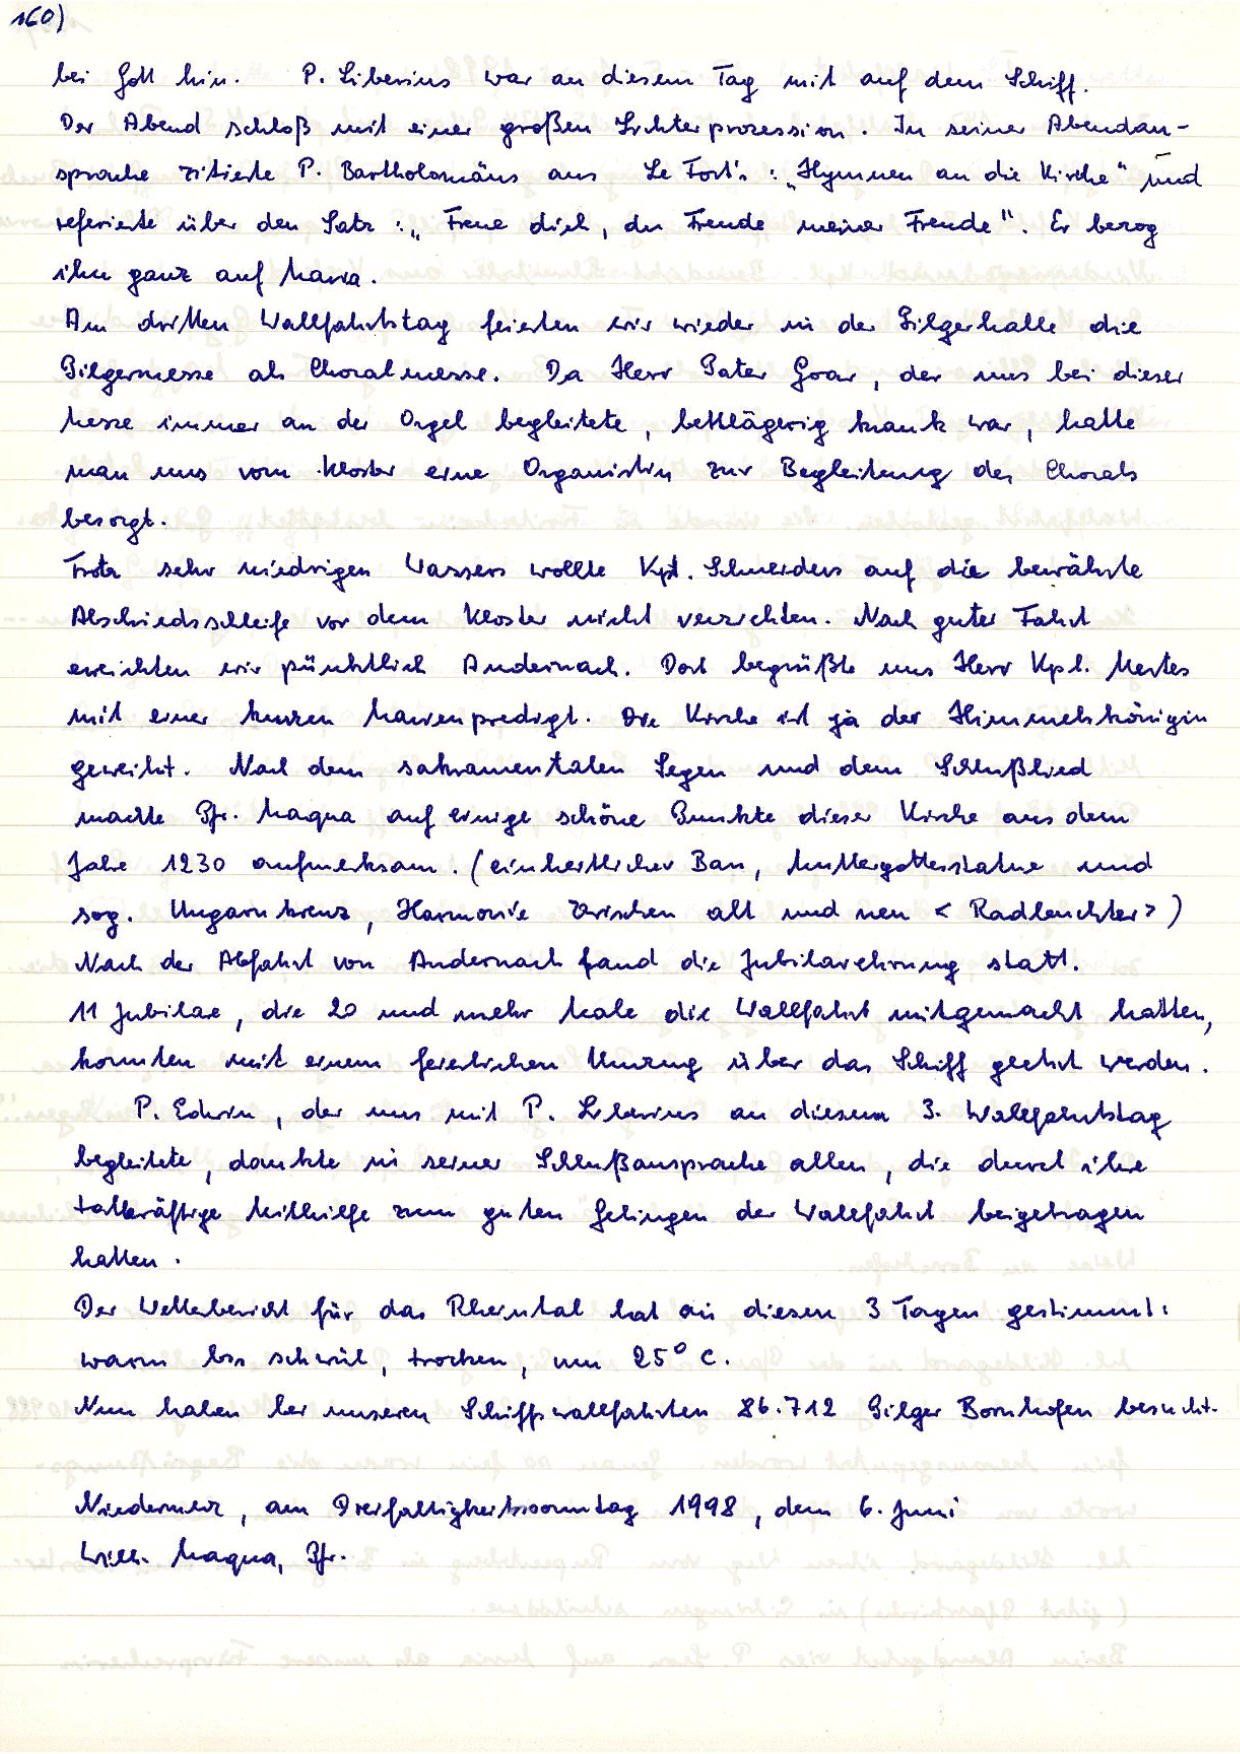 160)
bei Gott hin. P. Liberius war an diesem Tag mit auf dem Schiff.
Der Abend schloß mit einer großen Lichterprozession. In seiner Abendan-
sprache zitierte P. Bartholomäus aus Le Fort's: „Hymnen an die Kirche" und
referierte über den Satz: „Freue dich, du Freude meiner Freude". Er bezog
ihn ganz auf Maria.
Am dritten Wallfahrtstag feierten wir wieder in der Pilgerhalle die
Pilgermesse als Choralmesse. Da Herr Pater Goar, der uns bei dieser
Messe immer an der Orgel begleitete, bettlägerig krank war, hatte
man uns vom Kloster eine Organistin zur Begleitung des Chorals
besorgt.
Trotz sehr niedrigen Wassers wollte Kpt. Schneiders auf die bewährte
Abschiedsschleife vor dem Kloster nicht verzichten. Nach guter Fahrt
erreichten wir pünktlich Andernach. Dort begrüßte uns Herr Kpl. Mertes
mit einer kurzen Marienpredigt. Die Kirche ist ja der Himmelskönigin
geweiht. Nach dem sakramentalen Segen und dem Schlußlied
machte Pfr. Maqua auf einige schöne Punkte dieser Kirche aus dem
Jahre 1230 aufmerksam. (einheitlicher Bau, Muttergottesstatue und
sog. Ungarnkreuz, Harmonie zwischen alt und neu < Radleuchter>)
Nach der Abfahrt von Andernach fand die Jubilarehrung statt.
11 Jubilare, die 20 und mehr Male die Wallfahrt mitgemacht hatten,
konnten mit einem feierlichen Umzug über das Schiff geehrt werden.
P. Edwin, der uns mit P. Liberius an diesem 3. Wallfahrtstag
begleitete, dankte in seiner Schlußansprache allen, die durch ihre
tatkräftige Mithilfe zum guten Gelingen der Wallfahrt beigetragen
hatten.
Der Wetterbericht für das Rheintal hat an diesen 3 Tagen gestimmt:
warm bis schwül, trocken, um 25° C.
Nun haben bei unseren Schiffswallfahrten 86.712 Pilger Bornhofen besucht.
Niedermerz, am Dreifaltigkeitssonntag 1998, dem 6. Juni
Willi Maqua, Pfr.